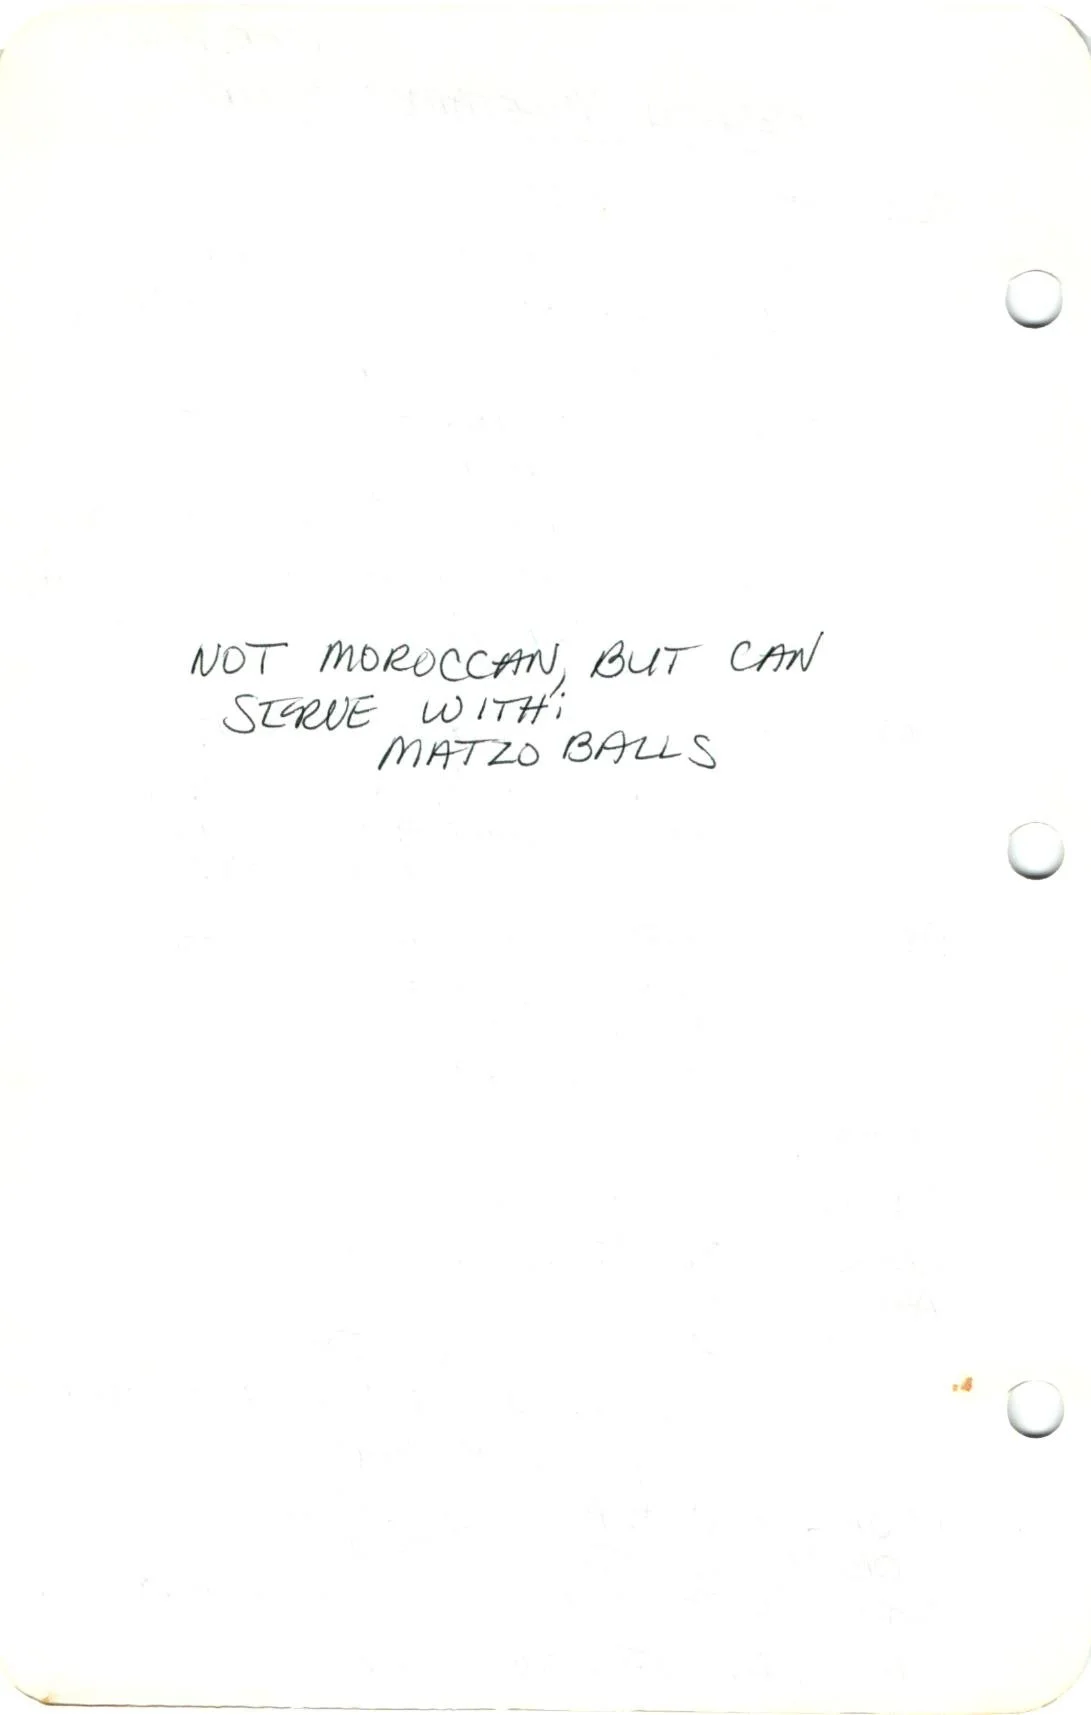 NOT MOROCCAN, BUT CAN
SERVE WITH:
MATZO BALLS